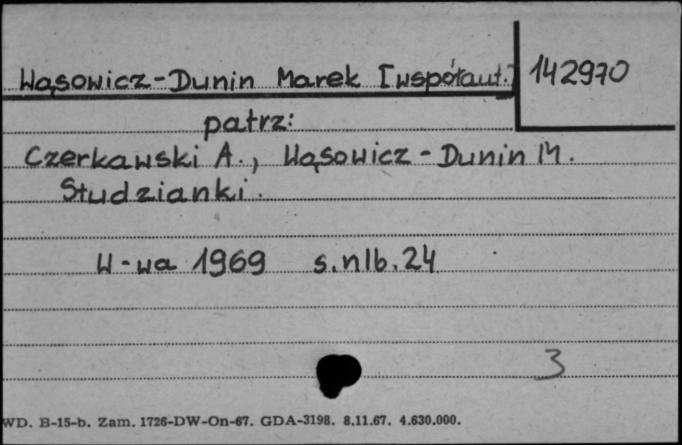 Wąsowicz-Dunin Marek [współaut.] 142970
patrz:
Czerkawski A., Wąsowicz-Dunin M.
Studzianki.
W-wa 1969 s.nlb.24
3
WD. B-15-b. Zam. 1726-DW-On-67. GDA-3198. 8.11.67. 4.630.000.